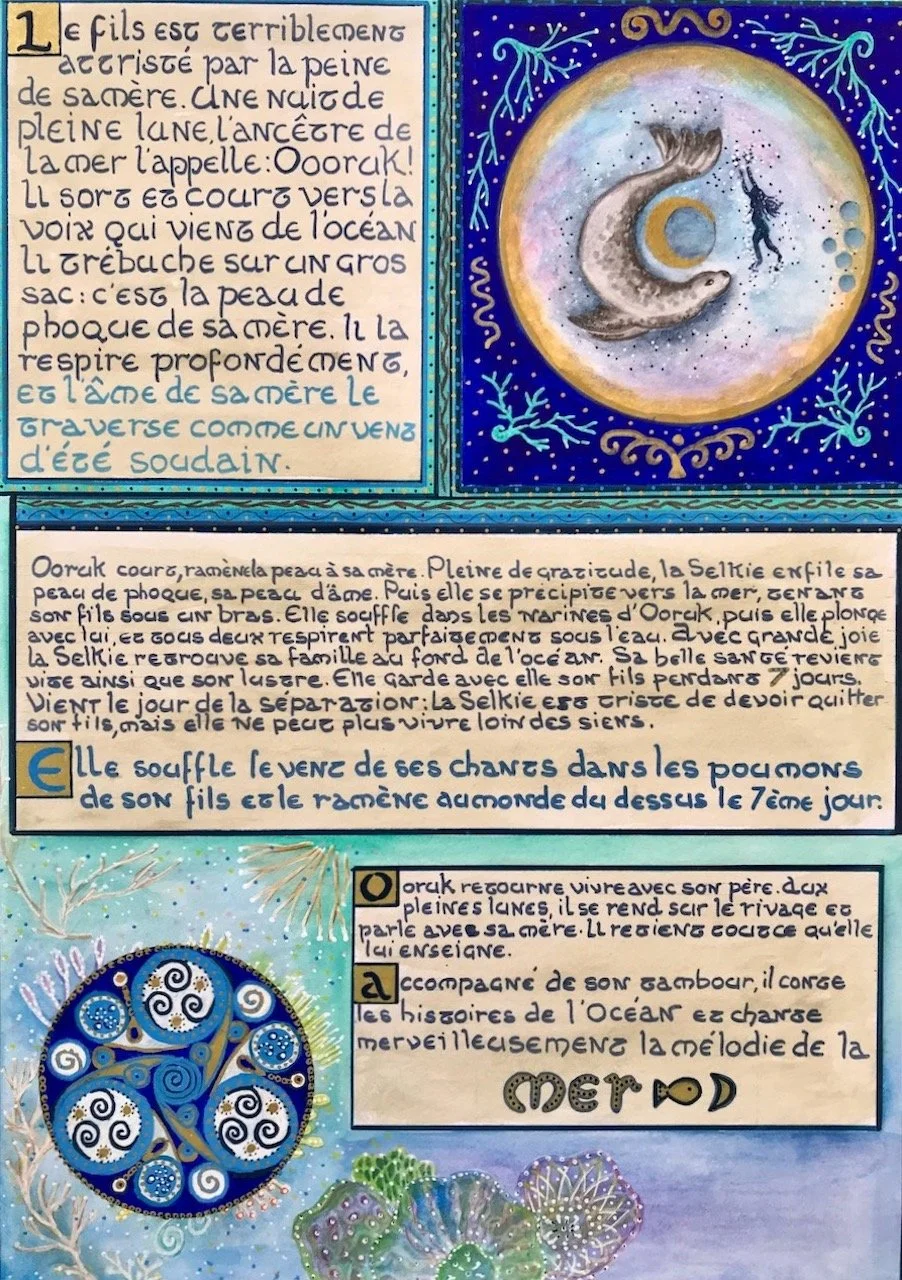 Le fils est terriblement
attristé par la peine
de sa mère. Une nuit de
pleine lune, l'ancêtre de
la mer l'appelle : Oooruk!
Il sort et court vers la
voix qui vient de l'océan
Il trébuche sur un gros
sac : c'est la peau de
phoque de sa mère. Il la
respire profondément,
et l'âme de sa mère le
traverse comme un vent
d'été soudain.
Ooruk court, ramène la peau à sa mère. Pleine de gratitude, la Selkie enfile sa
peau de phoque, sa peau d'âme. Puis elle se précipite vers la mer, tenant
son fils sous un bras. Elle souffle dans les narines d'Ooruk, puis elle plonge
avec lui, et tous deux respirent parfaitement sous l'eau. Avec grande joie
la Selkie retrouve sa famille au fond de l'océan. Sa belle santé revient
vite ainsi que son lustre. Elle garde avec elle son fils pendant 7 jours.
Vient le jour de la séparation : la Selkie est triste de devoir quitter
son fils, mais elle ne peut plus vivre loin des siens.
Elle souffle le vent de ses chants dans les poumons
de son fils et le ramène au monde du dessus le 7ème jour.
Ooruk retourne vivre avec son père. Aux
pleines lunes, il se rend sur le rivage et
parle avec sa mère. Il retient tout ce qu'elle
lui enseigne.
Accompagné de son tambour, il conte
les histoires de l'Océan et chante
merveilleusement la mélodie de la
mer